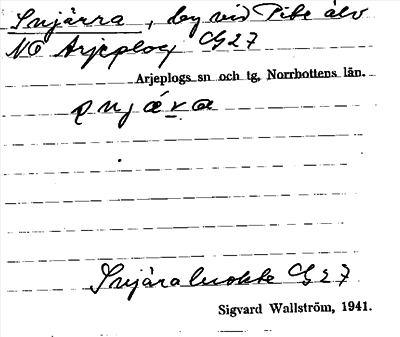 Snjárra, by vid Pite älv
NO Arjeplog G 27
Arjeplogs sn och tg, Norrbottens län.
snjára
Snjáraluokte G 27
Sigvard Wallström, 1941.